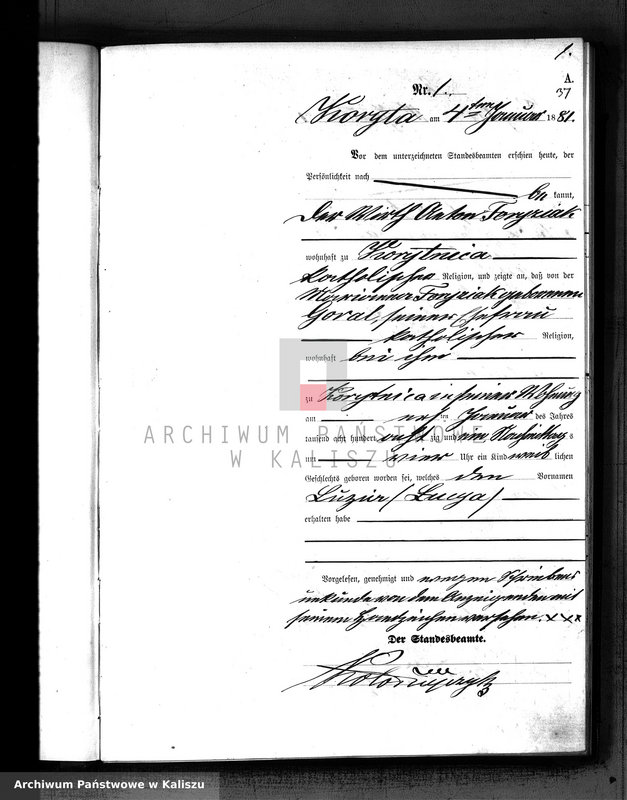 1.
A.
37
Nr. 1.
Koryta am 4ten Januar 1881.
Vor dem unterzeichneten Standesbeamten erschien heute, der
Persönlichkeit nach
be kannt,
der Wirth Anton
wohnhaft zu Korytnica
katholischer Religion, und zeigte an, daß von der
geborenen
Goral, seiner Ehefrau
katholischer Religion,
wohnhaft bei ihm
zu Korytnica in seiner Wohnung
am ersten Januar des Jahres
tausend acht hundert acht zig und ein Nachmittags
um vier Uhr ein Kind weib lichen
Geschlechts geboren worden sei, welches den Vornamen
Luzia (Lucya)
erhalten habe
Vorgelesen, genehmigt und wegen Schreibens
unkunde von dem Anzeigenden mit
seinem Handzeichen versehen. XXX
Der Standesbeamte.
ARCHIWUM PAŃSTWOWE
W KALISZU
Archiwum Państwowe w Kaliszu